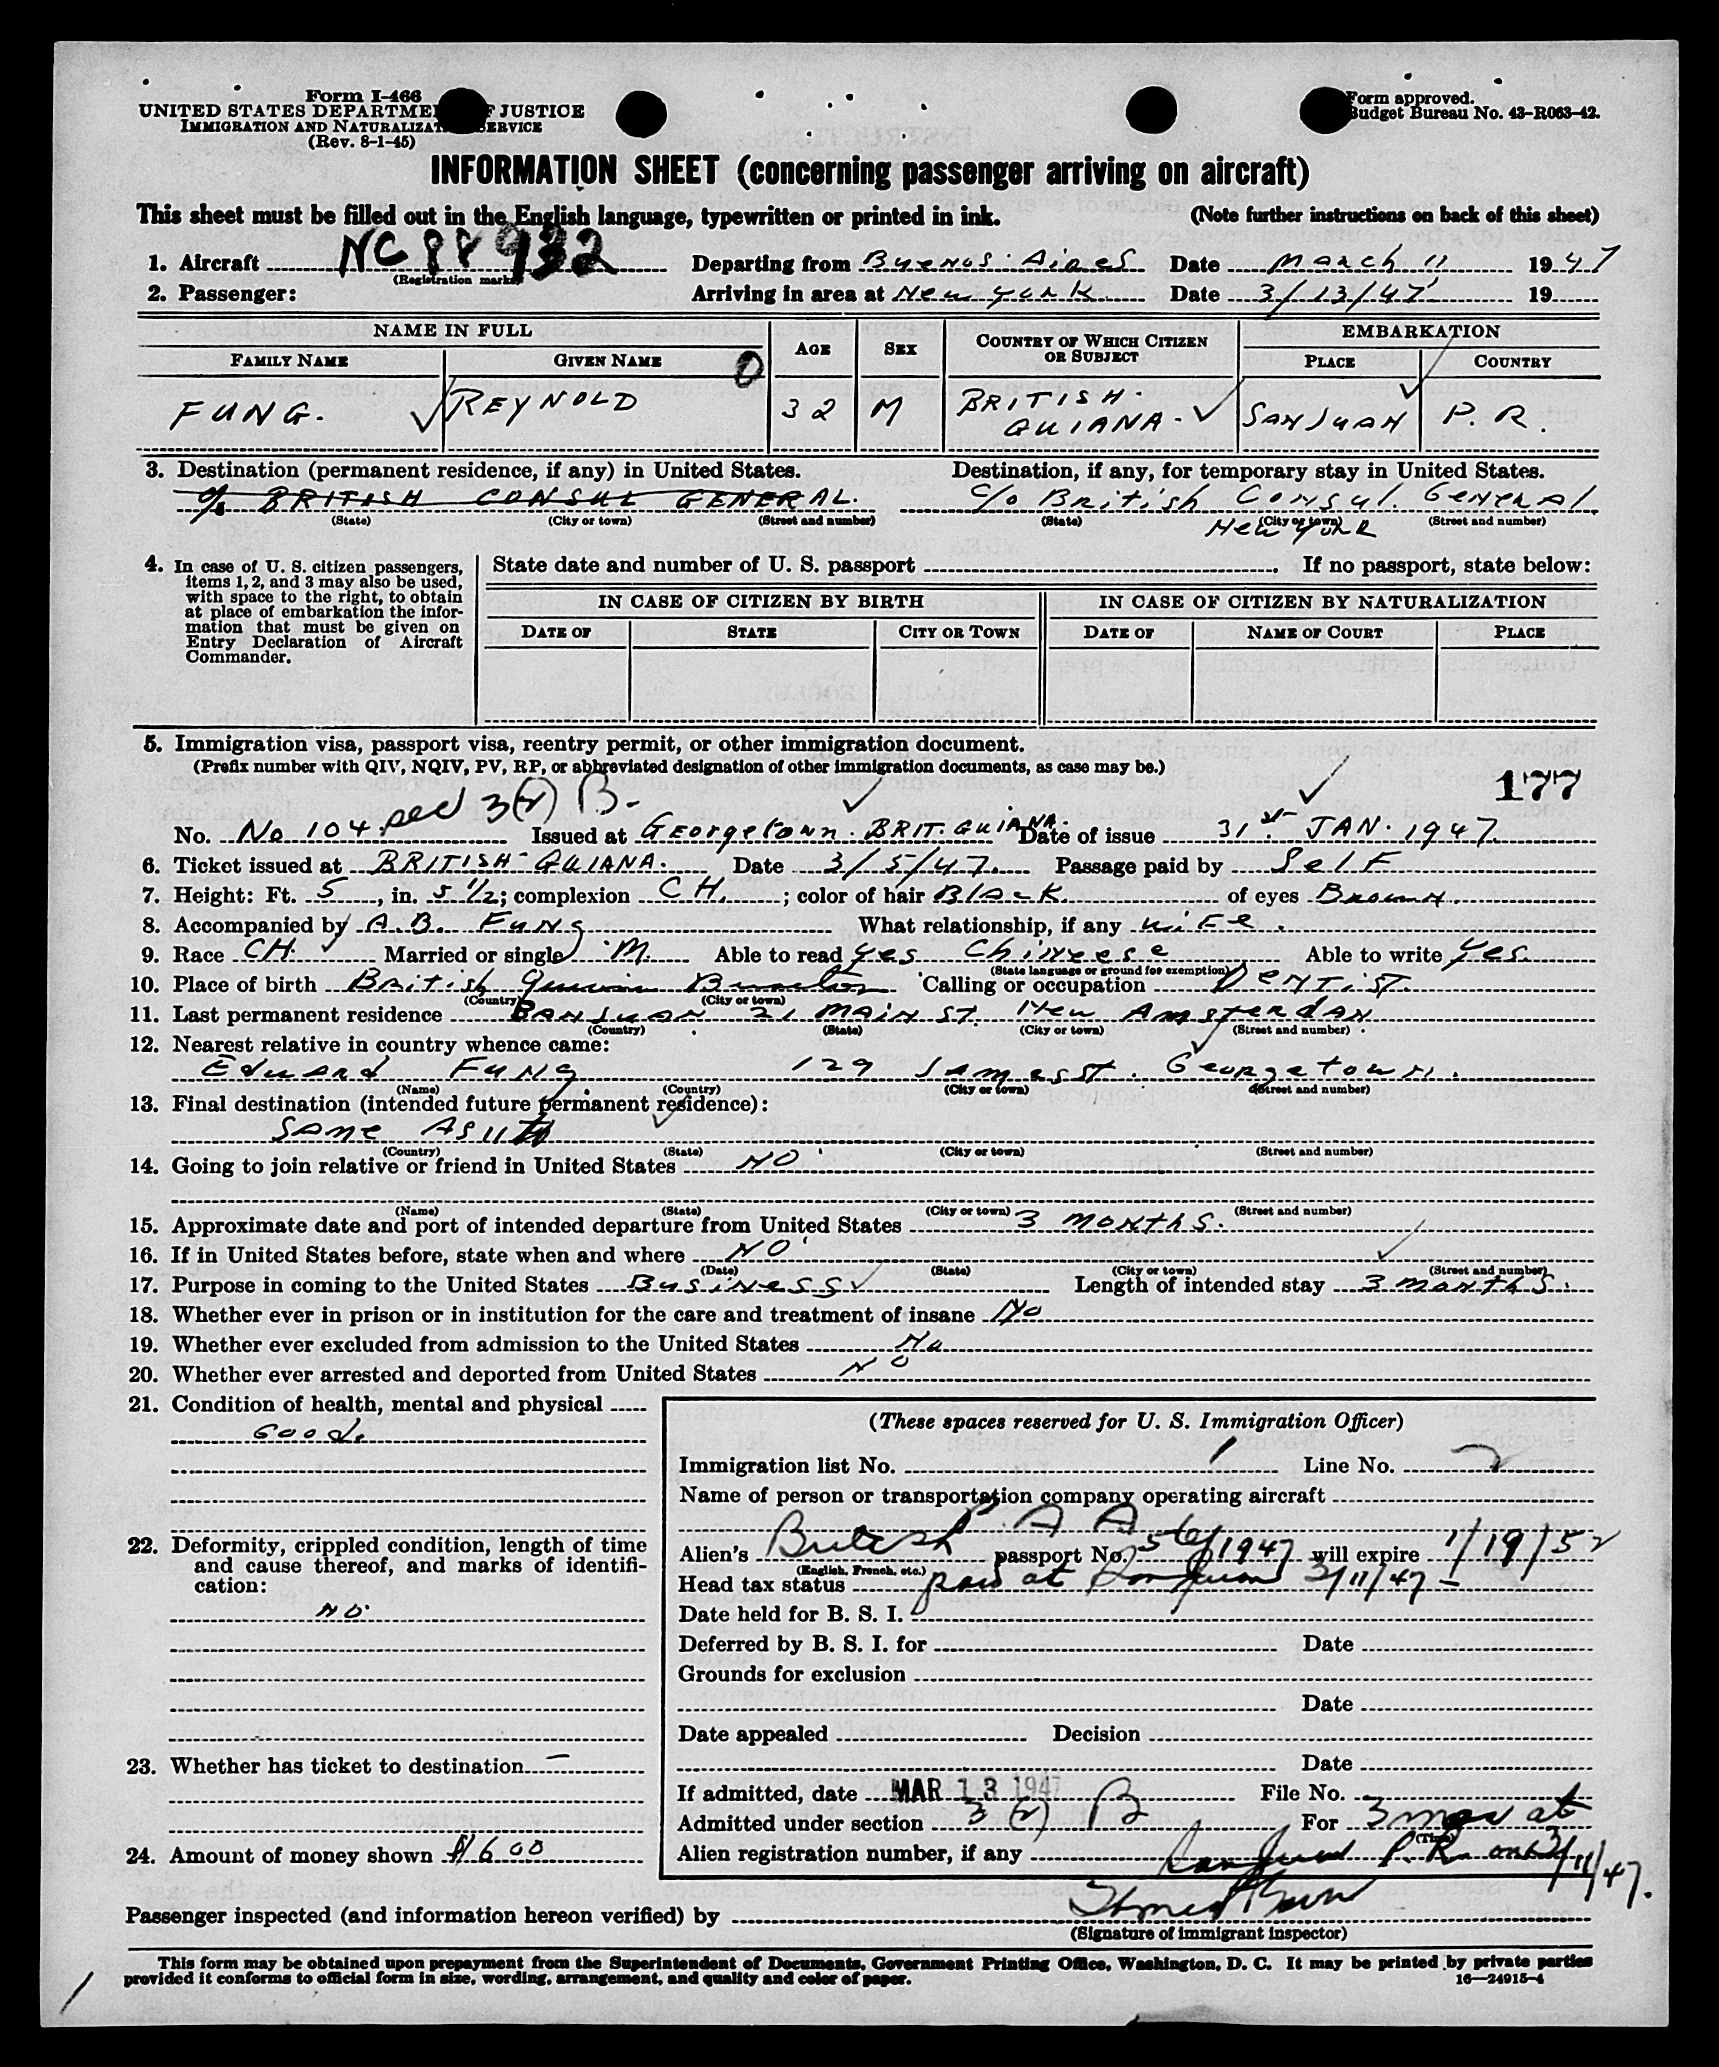 Form I-466
UNITED STATES DEPARTMENT OF JUSTICE
IMMIGRATION AND NATURALIZATION SERVICE
(Rev. 8-1-45)
Form approved.
Budget Bureau No. 43-R063-42.
INFORMATION SHEET (concerning passenger arriving on aircraft)
This sheet must be filled out in the English language, typewritten or printed in ink. (Note further instructions on back of this sheet)
1. Aircraft NC 88932 Departing from Buenos Aires Date March 11 1947
(Registration marks)
2. Passenger: Arriving in area at New York Date 3/13/47 19
NAME IN FULL AGE SEX COUNTRY OF WHICH CITIZEN OR SUBJECT EMBARKATION
FAMILY NAME GIVEN NAME PLACE COUNTRY
FUNG. REYNOLD 32 M BRITISH GUIANA. SAN JUAN P. R.
3. Destination (permanent residence, if any) in United States. Destination, if any, for temporary stay in United States.
c/o BRITISH CONSUL GENERAL. c/o British Consul General
(State) (City or town) (Street and number) (State) (City or town) (Street and number)
New York
4. In case of U. S. citizen passengers, items 1, 2, and 3 may also be used, with space to the right, to obtain at place of embarkation the information that must be given on Entry Declaration of Aircraft Commander.
State date and number of U. S. passport . If no passport, state below:
IN CASE OF CITIZEN BY BIRTH IN CASE OF CITIZEN BY NATURALIZATION
DATE OF STATE CITY OR TOWN DATE OF NAME OF COURT PLACE
5. Immigration visa, passport visa, reentry permit, or other immigration document.
(Prefix number with QIV, NQIV, PV, RP, or abbreviated designation of other immigration documents, as case may be.)
177
No. No 104. sec 3(2) B. Issued at Georgetown. BRIT. GUIANA. Date of issue 31st JAN. 1947.
6. Ticket issued at BRITISH GUIANA. Date 3/5/47. Passage paid by Self
7. Height: Ft. 5, in. 5 1/2; complexion CH.; color of hair Black of eyes Brown.
8. Accompanied by A.B. Fung What relationship, if any wife.
9. Race CH. Married or single M. Able to read yes Chineese Able to write yes.
(State language or ground for exemption)
10. Place of birth British Calling or occupation Dentist.
(Country) (City or town)
11. Last permanent residence 21 Main St. New Amsterdam
(Country) (State) (City or town) (Street and number)
12. Nearest relative in country whence came:
Edward Fung 129 James st. Georgetown.
(Name) (Country) (City or town) (Street and number)
13. Final destination (intended future permanent residence):
Same As 11
(Country) (State) (City or town) (Street and number)
14. Going to join relative or friend in United States NO
(Name) (State) (City or town) (Street and number)
15. Approximate date and port of intended departure from United States 3 months.
16. If in United States before, state when and where NO
(Date) (State) (City or town) (Street and number)
17. Purpose in coming to the United States Business Length of intended stay 3 months.
18. Whether ever in prison or in institution for the care and treatment of insane No
19. Whether ever excluded from admission to the United States No
20. Whether ever arrested and deported from United States NO
21. Condition of health, mental and physical
Good.
22. Deformity, crippled condition, length of time and cause thereof, and marks of identification:
NO
23. Whether has ticket to destination —
24. Amount of money shown $600
(These spaces reserved for U. S. Immigration Officer)
Immigration list No. 1 Line No. 2
Name of person or transportation company operating aircraft
P. A A
Alien's British passport No. 56/1947 will expire 1/19/52
(English, French, etc.)
Head tax status paid at San Juan 3/11/47
Date held for B. S. I.
Deferred by B. S. I. for Date
Grounds for exclusion
Date
Date appealed Decision
Date
If admitted, date MAR 13 1947 File No.
Admitted under section 3 (2) B For 3 mos at
(Time)
Alien registration number, if any San Juan P.R. on 3/11/47.
Passenger inspected (and information hereon verified) by
(Signature of immigrant inspector)
This form may be obtained upon prepayment from the Superintendent of Documents, Government Printing Office, Washington, D. C. It may be printed by private parties
provided it conforms to official form in size, wording, arrangement, and quality and color of paper.
16—24915-4